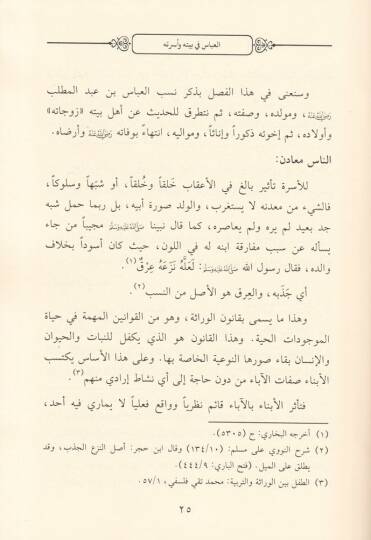 العباس في بيته وأسرته
وسنعنى في هذا الفصل بذكر نسب العباس بن عبد المطلب
رضي الله عنه، ومولده، وصفته، ثم نتطرق للحديث عن أهل بيته «زوجاته»
وأولاده، ثم إخوته ذكوراً وإناثاً، ومواليه، انتهاءً بوفاته رضي الله عنه وأرضاه.
الناس معادن:
للأسرة تأثير بالغ في الأعقاب خَلقاً وخُلقاً، أو شبَهاً وسلوكاً،
فالشيء من معدنه لا يستغرب، والولد صورة أبيه، بل ربما حمل شبه
جد بعيد لم يره ولم يعاصره، كما قال نبينا صلى الله عليه وسلم مجيباً من جاء
يسأله عن سبب مفارقة ابنه له في اللون، حيث كان أسوداً بخلاف
والده، فقال رسول الله صلى الله عليه وسلم: لَعَلَّهُ نَزَعَهُ عِرْقٌ(١).
أي جَذَبه، والعِرق هو الأصل من النسب(٢).
وهذا ما يسمى بقانون الوراثة، وهو من القوانين المهمة في حياة
الموجودات الحية. وهذا القانون هو الذي يكفل للنبات والحيوان
والإنسان بقاء صورها النوعية الخاصة بها. وعلى هذا الأساس يكتسب
الأبناء صفات الآباء من دون حاجة إلى أي نشاط إرادي منهم(٣).
فتأثر الأبناء بالآباء قائم نظرياً وواقع فعلياً لا يماري فيه أحد،
(١) أخرجه البخاري: ح (٥٣٠٥).
(٢) شرح النووي على مسلم: (١٣٤/١٠) وقال ابن حجر: أصل النزع الجذب، وقد
يطلق على الميل. (فتح الباري: ٤٤٤/٩).
(٣) الطفل بين الوراثة والتربية: محمد تقي فلسفي، ٥٧/١.
٢٥